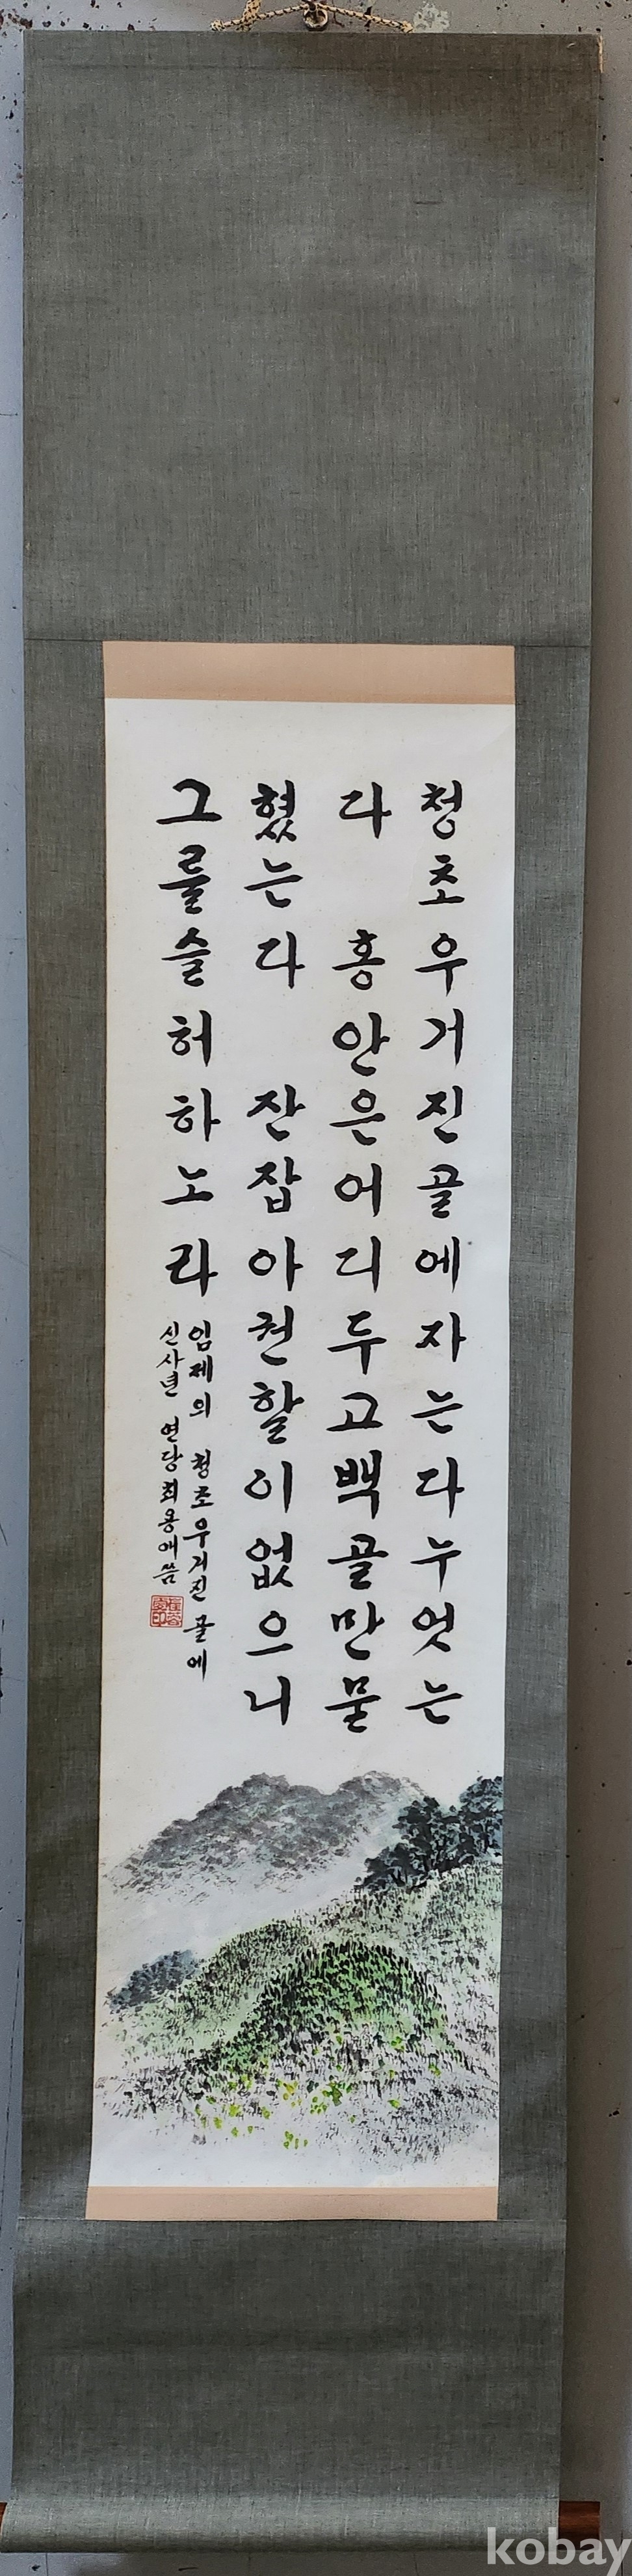 청초우거진골에자는다누엇는
다 홍안은어디두고백골만묻
혔는다 잔잡아권할이없으니
그를슬허하노라
임제의 청초우거진 골에
신사년 연당 최용애 씀
kobay